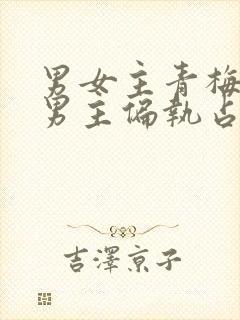 男女主青梅
男主偏执占
吉澤京子